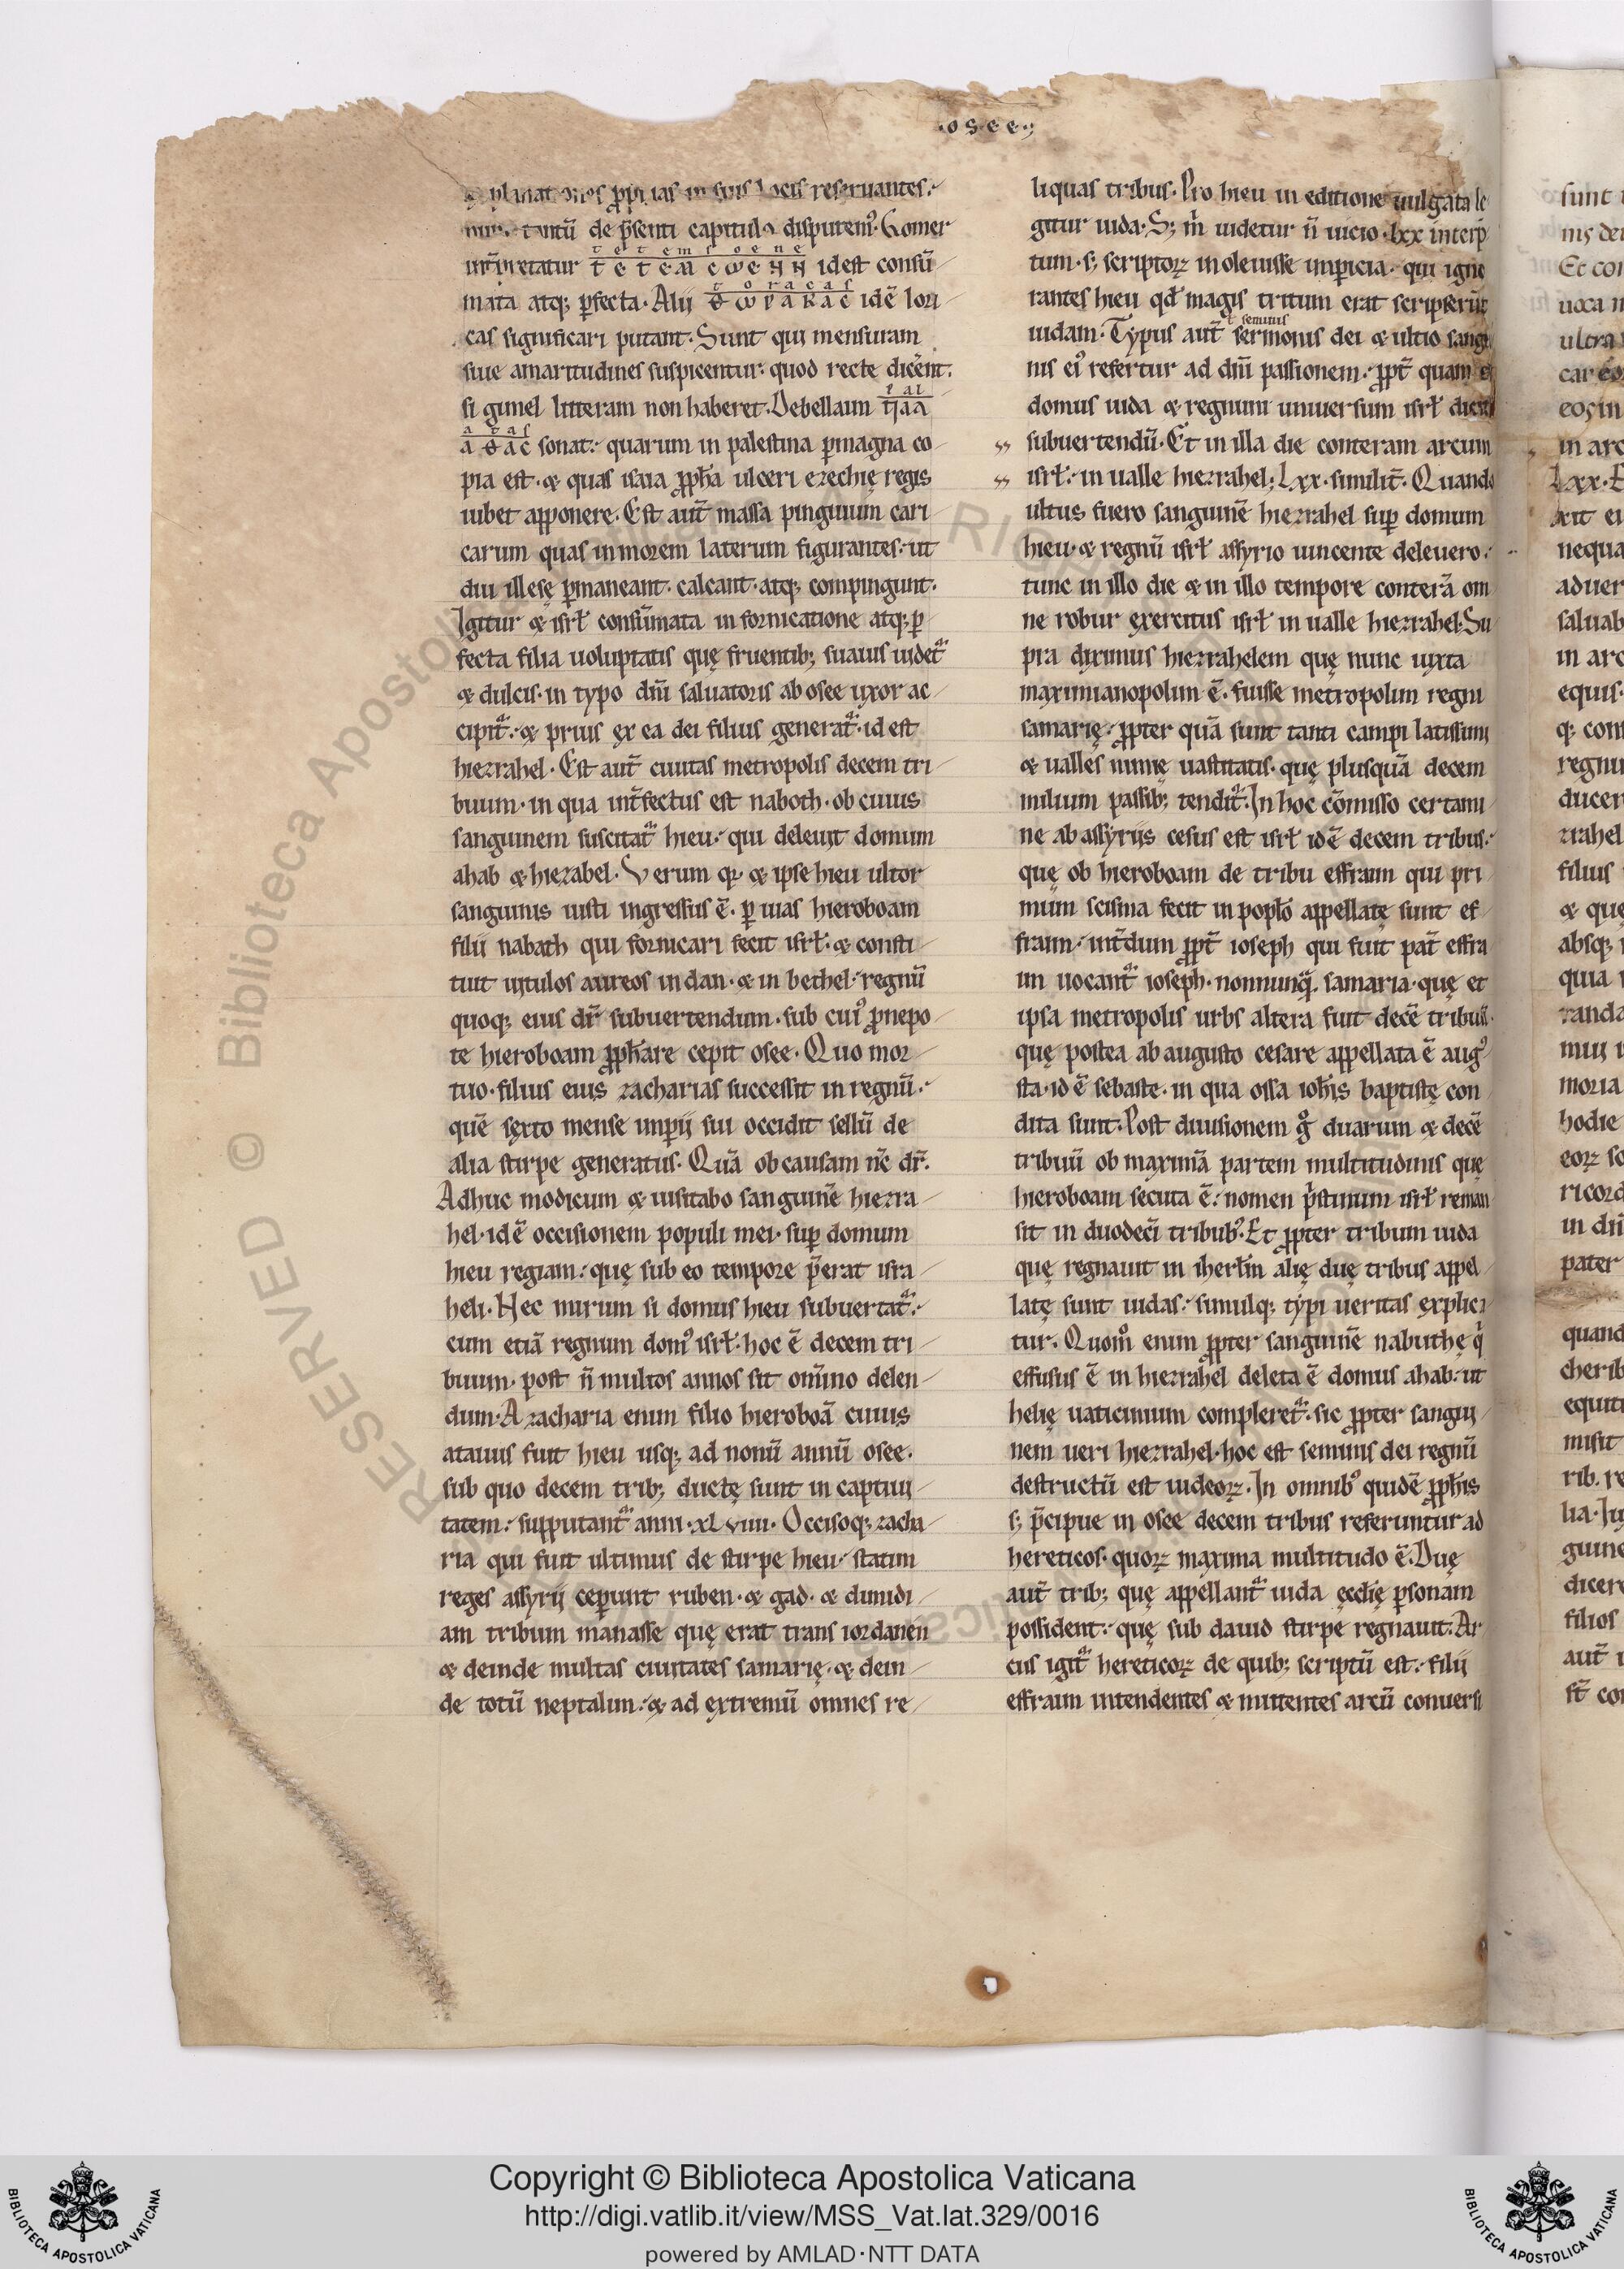 ·osee·
planationes p̄prias in suis locis reseruantes:
nunc tantū de p̄senti capitulo disputem᾽. Gomer
t e t e m s o e n e
int̄pretatur τετελεσμενη idest consū
t o r a c a s
mata atq; p̄fecta. Alij θωρακας idē lori
cas significari putant. Sunt qui mensuram
siue amaritudines suspicentur: quod recte dicēnt.
si gimel litteram non haberet. Debellaim παλ
a t a s
αθας sonat: quarum in palestina p̄magna co
pia est. & quas isaia p̄ph̄a ulceri ezechię regis
iubet apponere. Est aut̄ massa pinguium cari
carum quas in morem laterum figurantes: ut
diu illesę p̄maneant. calcant. atq; compingunt.
Igitur & isrł consūmata in fornicatione atq; p̄
fecta filia uoluptatis quę fruentib; suauis uidet᾽
& dulcis. in typo dn̄i saluatoris ab osee uxor ac
cipit᾽: & prius ex ea dei filius generat᾽. id est
hiezrahel. Est aut̄ ciuitas metropolis decem tri
buum. in qua int̄fectus est naboth. ob cuius
sanguinem suscitat᾽ hieu: qui deleuit domum
ahab & hiezabel. Verum q̄ & ipse hieu ultor
sanguinis iusti ingressus ē. p̄ uias hieroboam
filii nabath qui fornicari fecit isrł. & consti
tuit uitulos aureos in dan. & in bethel: regnū
quoq; eius dr̄ subuertendum. sub cui᾽ p̄nepo
te hieroboam p̄ph̄are cepit osee. Quo mor
tuo. filius eius zacharias successit in regnū:
quē sexto mense imp̄ij sui occidit sellū de
alia stirpe generatus. Quā ob causam nc̄ dr̄.
Adhuc modicum & uisitabo sanguinē hiezra
hel. idē occisionem populi mei. sup̄ domum
hieu regiam: quę sub eo tempore p̄erat isra
heli. Nec mirum si domus hieu subuertat᾽:
cum etiā regnum dom᾽ isrł. hoc ē decem tri
buum. post n̄ multos annos sit om̄ino delen
dum. A zacharia enim filio hieroboā cuius
atauus fuit hieu usq; ad nonū annū osee.
sub quo decem trib; ductę sunt in captiui
tatem: supputant᾽ anni .xl viiii. Occisoq; zacha
ria qui fuit ultimus de stirpe hieu: statim
reges assyrij cep̄unt ruben. & gad. & dimidi
am tribum manasse quę erat trans iordanen
& deinde multas ciuitates samarię. & dein
de totū neptalim: & ad extremū omnes re
liquas tribus. Pro hieu in editione uulgata le
gitur iuda. S; m̄ uidetur n̄ uicio .lxx interp̄
tum. s; scriptoꝝ inoleuisse imp̄icia. qui igno
rantes hieu qd̄ magis tritum erat scripserūt
ł seminis
iudam. Typus aut̄ sermonis dei & ultio sangi
nis ei᾽ refertur ad dn̄i passionem: p̄pt̄ quam et
domus iuda & regnum uniuersum isrł dicit
subuertendū. Et in illa die conteram arcum
isrł: in ualle hiezrahel; Lxx. similit̄. Quando
ultus fuero sanguinē hiezrahel sup̄ domum
hieu. & regnū isrł assyrio uincente deleuero:
tunc in illo die & in illo tempore conterā om
ne robur exercitus isrł in ualle hiezrahel. Su
pra diximus hiezrahelem quę nunc iuxta
maximianopolim ē. fuisse metropolim regni
samarię: p̄pter quā sunt tanti campi latissimi
& ualles nimię uastitatis. quę plusquā decem
milium passib; tendit᾽. In hoc cōmisso certami
ne ab assyrijs cesus est isrł idē decem tribus:
quę ob hieroboam de tribu effraim qui pri
mum scisma fecit in popło appellatę sunt ef
fraim: int̄dum p̄pt̄ ioseph qui fuit pat̄ effra
im uocant᾽ ioseph. nonnunq̄. samaria. quę et
ipsa metropolis urbs altera fuit decē tribuū.
quę postea ab augusto cesare appellata ē aug᾽
sta. id ē sebaste. in qua ossa ioh̄is baptistę con
dita sunt. Post diuisionem g̊ duarum & decē
tribuū ob maximā partem multitudinis quę
hieroboam secuta ē: nomen p̄stinum isrł reman
sit in duodeci tribub᾽. Et p̄pter tribum iuda
quę regnauit in iherłm alię duę tribus appel
latę sunt iudas: simulq; typi ueritas explica
tur. Quom̊ enim p̄pter sanguinē nabuthe q̄
effusus ē in hiezrahel deleta ē domus ahab: ut
helię uaticinium compleret᾽. sic p̄pter sangui
nem ueri hiezrahel. hoc est seminis dei regnū
destructū est iudeoꝝ. In omnib᾽ quidē p̄ph̄is
s; p̄cipue in osee decem tribus referuntur ad
hereticos. quoꝝ maxima multitudo ē. Duę
aut̄ trib; quę appellant᾽ iuda ęcclię p̄sonam
possident: quę sub dauid stirpe regnauit. Ar
cus igit᾽ hereticoꝝ de quib; scriptū est: filij
effraim intendentes & mittentes arcū conuersi
Copyright © Biblioteca Apostolica Vaticana
http://digi.vatlib.it/view/MSS_Vat.lat.329/0016
powered by AMLAD·NTT DATA
BIBLIOTECA APOSTOLICA VATICANA
BIBLIOTECA APOSTOLICA VATICANA